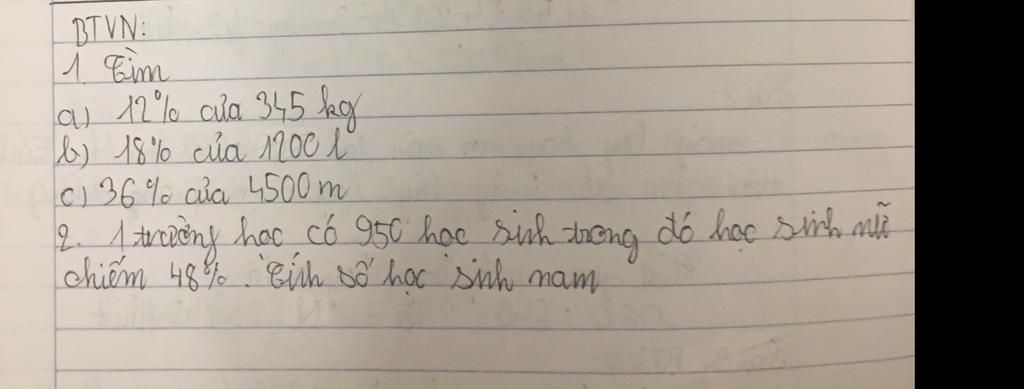 BTVN:
1. Tìm
a) 12% của 345 kg
b) 18% của 1200 l
c) 36% của 4500 m
2. 1 trường học có 950 học sinh trong đó học sinh nữ
chiếm 48%. Tính số học sinh nam